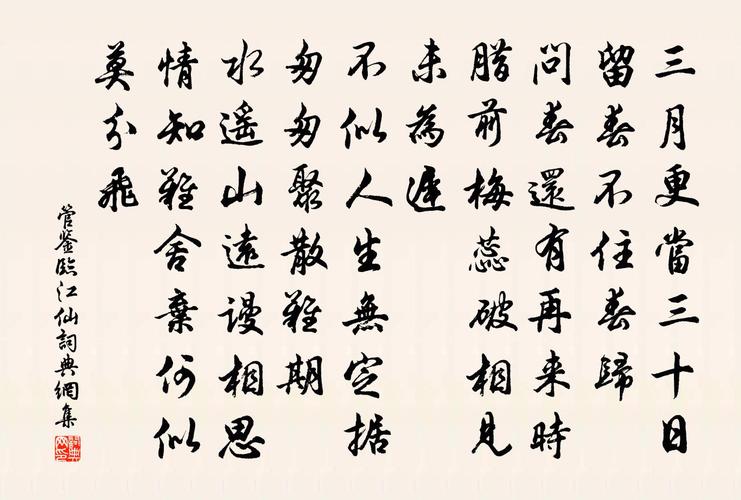 三月更當三十日
留春不住春歸
問春還有再来時
腊前梅蕊破相見
未為遲
不似人生無定据
匆匆聚散難期
水遥山遠謾相思
情知難舍棄何似
莫分飛
管鉴臨江仙詞典網集